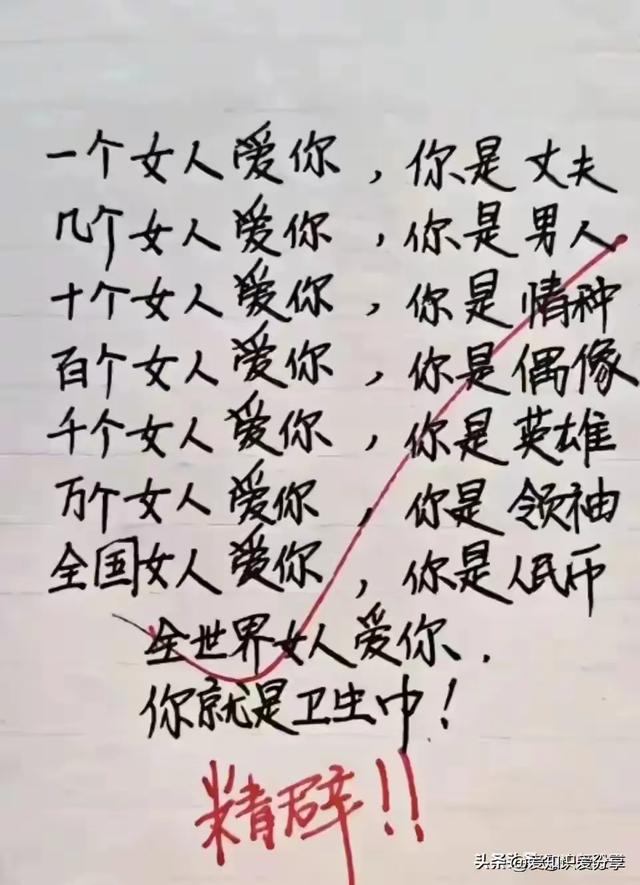 一个女人爱你，你是丈夫
几个女人爱你，你是男人
十个女人爱你，你是情种
百个女人爱你，你是偶像
千个女人爱你，你是英雄
万个女人爱你，你是领袖
全国女人爱你，你是人民币
全世界女人爱你．
你就是卫生巾！
精辟!!
头条 @爱知识爱分享